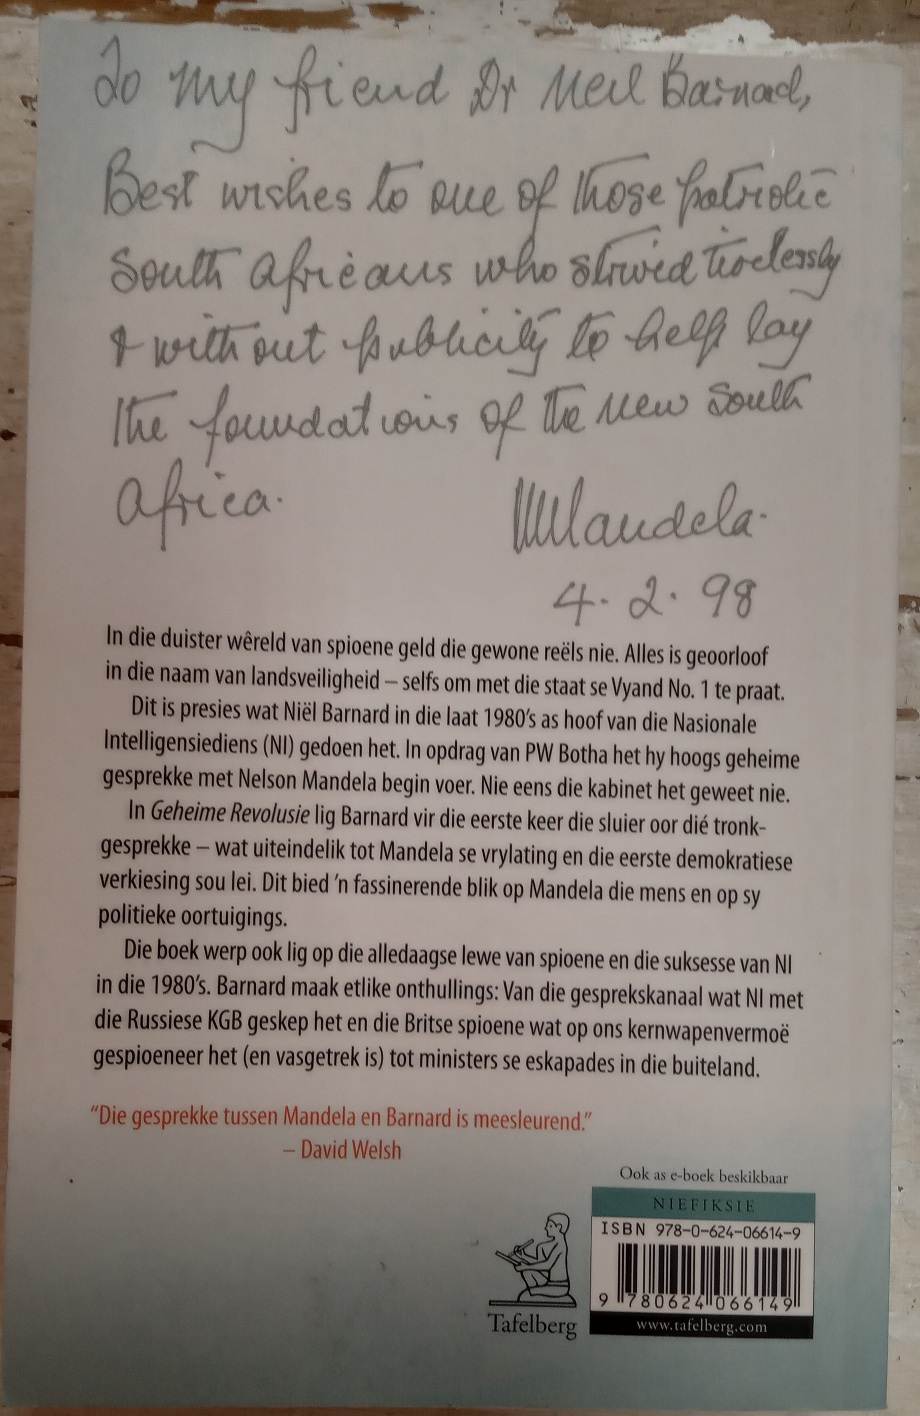 To my friend Dr Neil Barnard,
Best wishes to one of those patriotic
South Africans who strived tirelessly
& without publicity to help lay
the foundations of the new South
Africa.
NMandela.
4.2.98
In die duister wêreld van spioene geld die gewone reëls nie. Alles is geoorloof
in die naam van landsveiligheid – selfs om met die staat se Vyand No. 1 te praat.
Dit is presies wat Niël Barnard in die laat 1980's as hoof van die Nasionale
Intelligensiediens (NI) gedoen het. In opdrag van PW Botha het hy hoogs geheime
gesprekke met Nelson Mandela begin voer. Nie eens die kabinet het geweet nie.
In Geheime Revolusie lig Barnard vir die eerste keer die sluier oor dié tronk-
gesprekke – wat uiteindelik tot Mandela se vrylating en die eerste demokratiese
verkiesing sou lei. Dit bied 'n fassinerende blik op Mandela die mens en op sy
politieke oortuigings.
Die boek werp ook lig op die alledaagse lewe van spioene en die suksesse van NI
in die 1980's. Barnard maak etlike onthullings: Van die gesprekskanaal wat NI met
die Russiese KGB geskep het en die Britse spioene wat op ons kernwapenvermoë
gespioeneer het (en vasgetrek is) tot ministers se eskapades in die buiteland.
"Die gesprekke tussen Mandela en Barnard is meesleurend."
– David Welsh
Ook as e-boek beskikbaar
NIEFIKSIE
ISBN 978-0-624-06614-9
9 780624 066149
www.tafelberg.com
Tafelberg